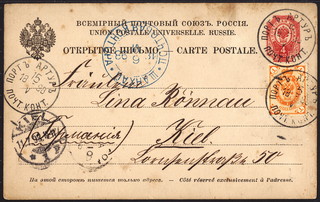 ВСЕМІРНЫЙ ПОЧТОВЫЙ СОЮЗ. РОССІЯ.
UNION POSTALE UNIVERSELLE. RUSSIE.
ОТКРЫТОЕ ПИСЬМО. — CARTE POSTALE.
ПОРТЪ АРТУРЪ
ПОЧТ. КОНТ.
Fräulein
Lina Rönnau
Kiel.
(Германія)
KIEL
50
На этой сторонѣ пишется только адресъ. — Côté réservé exclusivement à l'adresse.